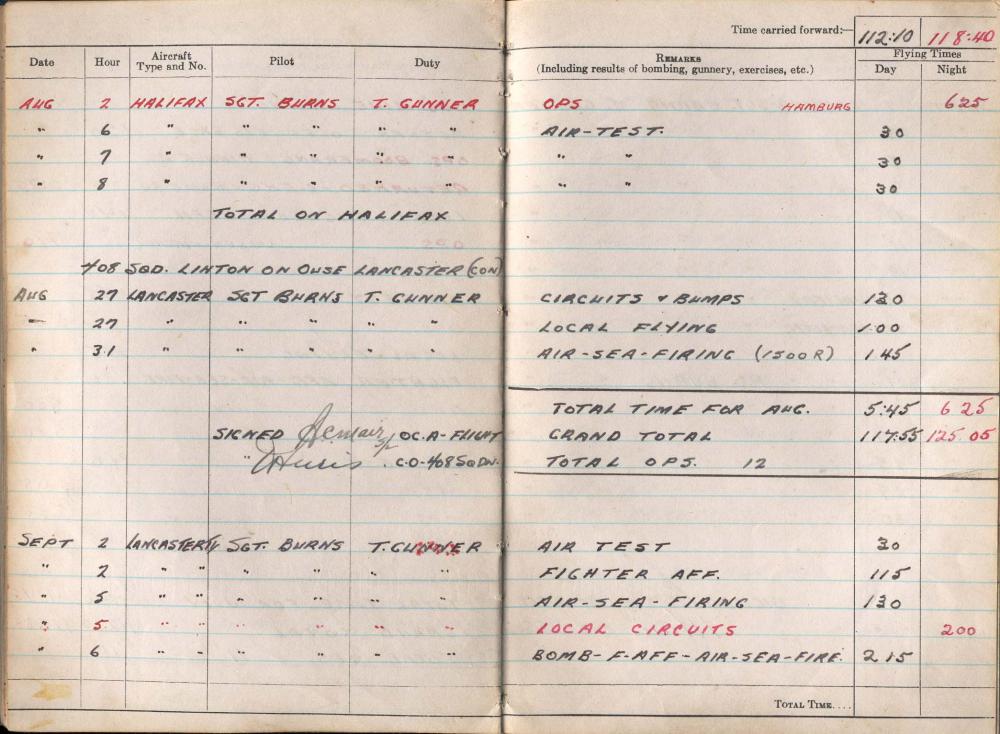 Time carried forward:— 112:10 118:40
Date Hour Aircraft Type and No. Pilot Duty REMARKS (Including results of bombing, gunnery, exercises, etc.) Flying Times Day Night
AUG 2 HALIFAX SGT. BURNS T. GUNNER OPS HAMBURG 6 25
" 6 " " " " " AIR-TEST. 30
" 7 " " " " " " " 30
" 8 " " " " " " " 30
TOTAL ON HALIFAX
408 SQD. LINTON ON OUSE LANCASTER (CON)
AUG 27 LANCASTER SGT BURNS T. GUNNER CIRCUITS & BUMPS 130
" 27 " " " " " LOCAL FLYING 1.00
" 31 " " " " " AIR-SEA-FIRING (1500 R) 1 45
TOTAL TIME FOR AUG. 5:45 6 25
SIGNED OC. A-FLIGHT GRAND TOTAL 117:55 125.05
" C.O-408 SQDN. TOTAL OPS. 12
SEPT 2 LANCASTER SGT. BURNS T. GUNNER AIR TEST 30
" 2 " " " " " " FIGHTER AFF. 115
" 5 " " " " " " AIR-SEA-FIRING 130
" 5 " " " " " " LOCAL CIRCUITS 200
" 6 " " " " " " BOMB-F-AFF-AIR-SEA-FIRE. 215
TOTAL TIME....